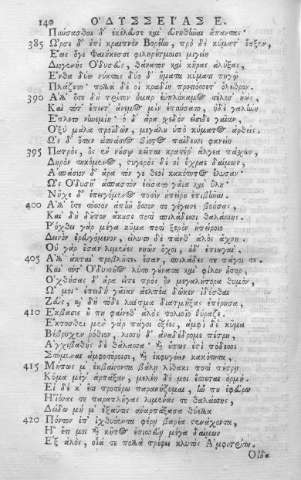 140 ὈΔΥΣΣΕΙΑΣ Ε.
Παύσασθαι δ' ἐκέλευσε καὶ εὐνηθῆναι ἅπαντας·
385 Ὦρσε δ' ἐπὶ κραιπνὸν Βορέην, πρὸ δὲ κύματ' ἔαξεν,
Ἕως ὅγε Φαιήκεσσι φιληρέτμοισι μιγείη
Διογενὴς Ὀδυσεὺς, θάνατον καὶ κῆρας ἀλύξας.
Ἔνθα δύω νύκτας δύο δ' ἤματα κύματι πηγῷ
Πλάζετο· πολλὰ δέ οἱ κραδίη προτιόσσετ' ὄλεθρον.
390 Ἀλλ' ὅτε δὴ τρίτον ἦμαρ ἐϋπλόκαμος τέλεσ' ἠὼς,
Καὶ τότ' ἔπειτ' ἄνεμος μὲν ἐπαύσατο, ἠδὲ γαλήνη
Ἔπλετο νηνεμίη· ὁ δ' ἄρα σχεδὸν εἴσιδε γαῖαν,
Ὀξὺ μάλα προϊδὼν, μεγάλου ὑπὸ κύματος ἀρθείς.
Ὡς δ' ὅταν ἀσπάσιος βίοτος παίδεσσι φανείη
395 Πατρὸς, ὃς ἐν νούσῳ κεῖται κρατέρ' ἄλγεα πάσχων,
Δηρὸν τηκόμενος, στυγερὸς δέ οἱ ἔχραε δαίμων,
Ἀσπάσιον δ' ἄρα τόν γε θεοὶ κακότητος ἔλυσαν·
Ὣς Ὀδυσῆ' ἀσπαστὸν ἐείσατο γαῖα καὶ ὕλη·
Νῆχε δ' ἐπειγόμενος ποσὶν ἠπείρου ἐπιβῆναι.
400 Ἀλλ' ὅτε τόσσον ἀπῆν ὅσσον τε γέγωνε βοήσας,
Καὶ δὴ δοῦπον ἄκουσε ποτὶ σπιλάδεσσι θαλάσσης.
Ῥόχθει γὰρ μέγα κῦμα ποτὶ ξερὸν ἠπείροιο
Δεινὸν ἐρευγόμενον, εἴλυτο δὲ πάνθ' ἁλὸς ἄχνῃ.
Οὐ γὰρ ἔσαν λιμένες νηῶν ὀχοὶ, οὐδ' ἐπιωγαὶ,
405 Ἀλλ' ἀκταὶ προβλῆτες ἔσαν, σπιλάδες τε πάγοι τε.
Καὶ τότ' Ὀδυσσῆος λύτο γούνατα καὶ φίλον ἦτορ,
Ὀχθήσας δ' ἄρα εἶπε πρὸς ὃν μεγαλήτορα θυμόν,
Ὤ μοι· ἐπειδὴ γαῖαν ἀελπέα δῶκεν ἰδέσθαι
Ζεὺς, καὶ δὴ τόδε λαῖτμα διατμήξας ἐπέρησα,
410 Ἔκβασις οὔ πη φαίνεθ' ἁλὸς πολιοῖο θύραζε.
Ἔκτοσθεν μὲν γὰρ πάγοι ὀξέες, ἀμφὶ δὲ κῦμα
Βέβρυχεν ῥόθιον, λισσὴ δ' ἀναδέδρομε πέτρη,
Ἀγχιβαθὴς δὲ θάλασσα· καὶ οὔπως ἐστὶ πόδεσσι
Στήμεναι ἀμφοτέροισι, καὶ ἐκφυγέειν κακότητα.
415 Μήπως μ' ἐκβαίνοντα βάλῃ λίθακι ποτὶ πέτρῃ
Κῦμα μέγ' ἁρπάξαν, μελέη δέ μοι ἔσσεται ὁρμή.
Εἰ δέ κ' ἔτι προτέρω παρανήξομαι, ἤν που ἐφεύρω
Ἠϊόνας τε παραπλῆγας λιμένας τε θαλάσσης,
Δείδω μή μ' ἐξαῦτις ἀναρπάξασα θύελλα
420 Πόντον ἐπ' ἰχθυόεντα φέρῃ βαρέα στενάχοντα,
Ἠέ τί μοι καὶ κῆτος ἐπισσεύῃ μέγα δαίμων
Ἐξ ἁλὸς, οἷά τε πολλὰ τρέφει κλυτὸς Ἀμφιτρίτη.
Οἶδα